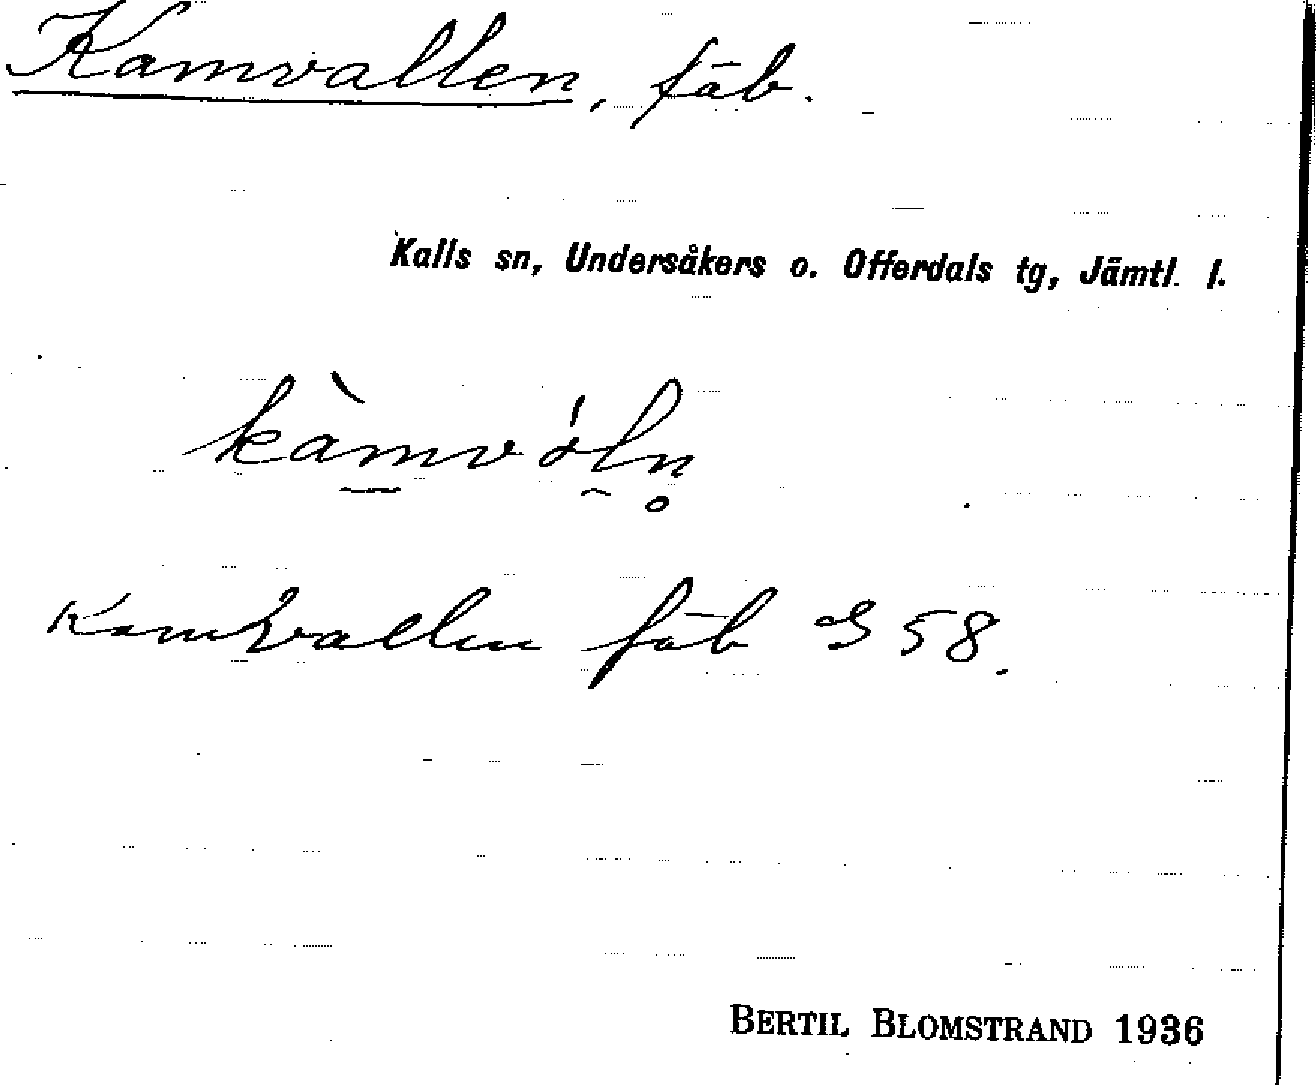 Kamvallen, fäb.
Kalls sn, Undersåkers o. Offerdals tg, Jämtl. l.
kàmvóln̥
fäb S 58.
BERTIL BLOMSTRAND 1936